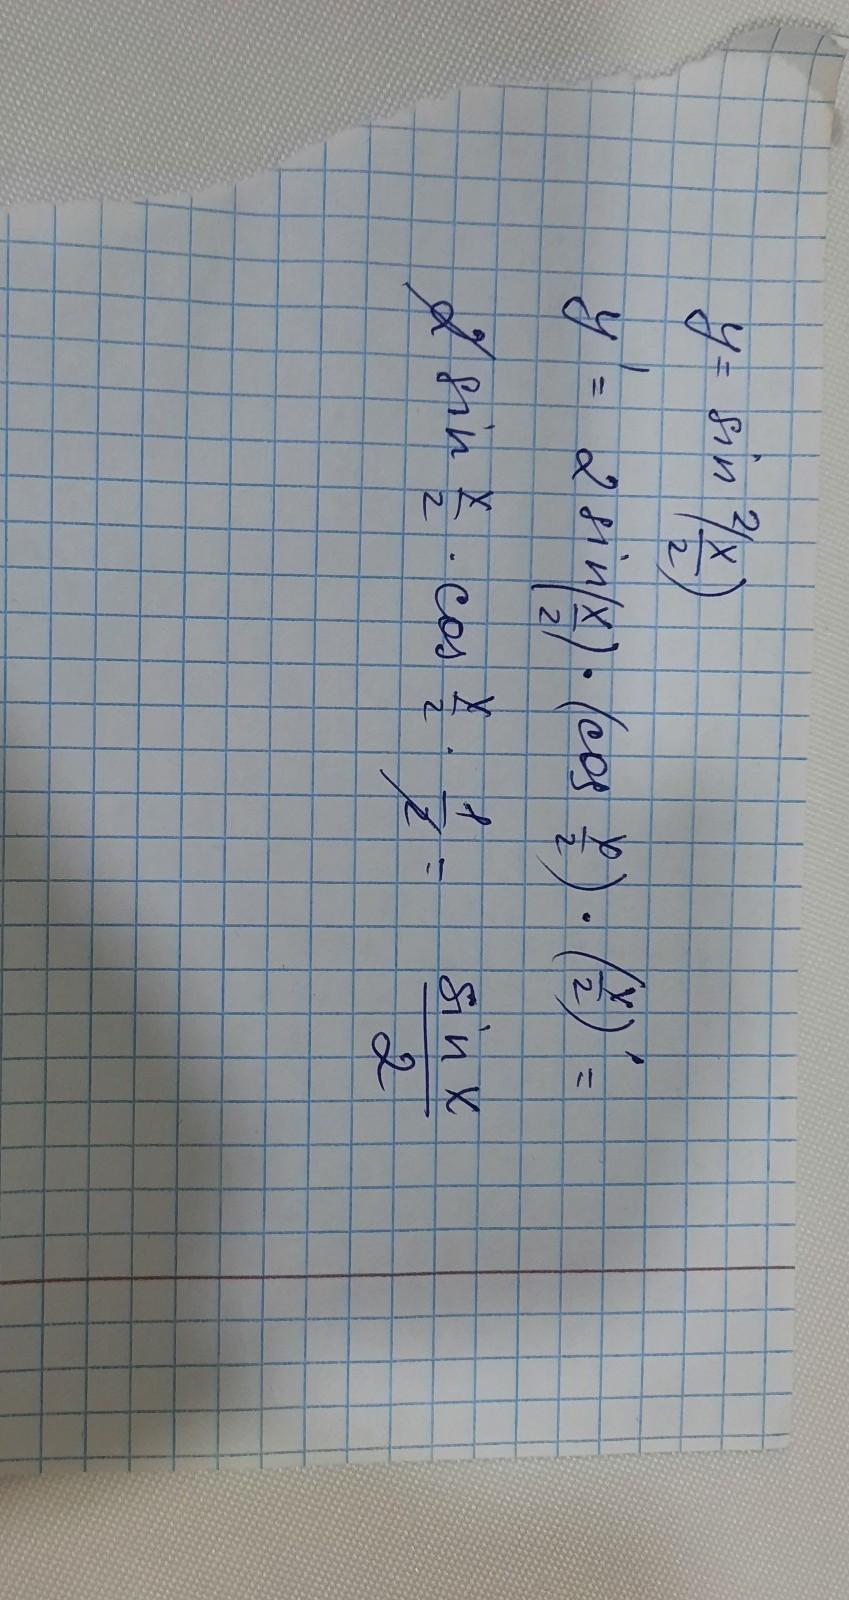 y = sin²(x/2)
y' = 2 sin(x/2) · (cos x/2) · (x/2)' =
2 sin x/2 · cos x/2 · 1/2 = sin x / 2